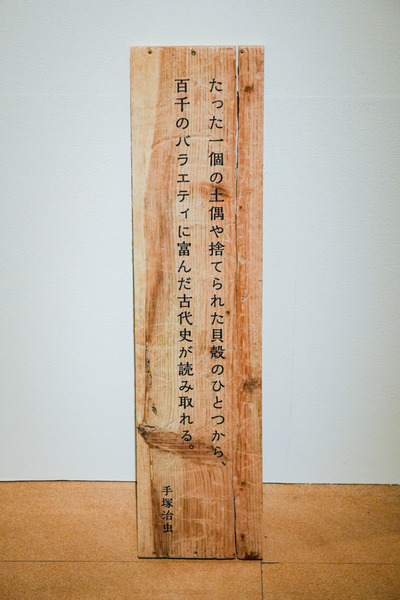 たった一個の土偶や捨てられた貝殻のひとつから、
百千のバラエティに富んだ古代史が読み取れる。
手塚治虫